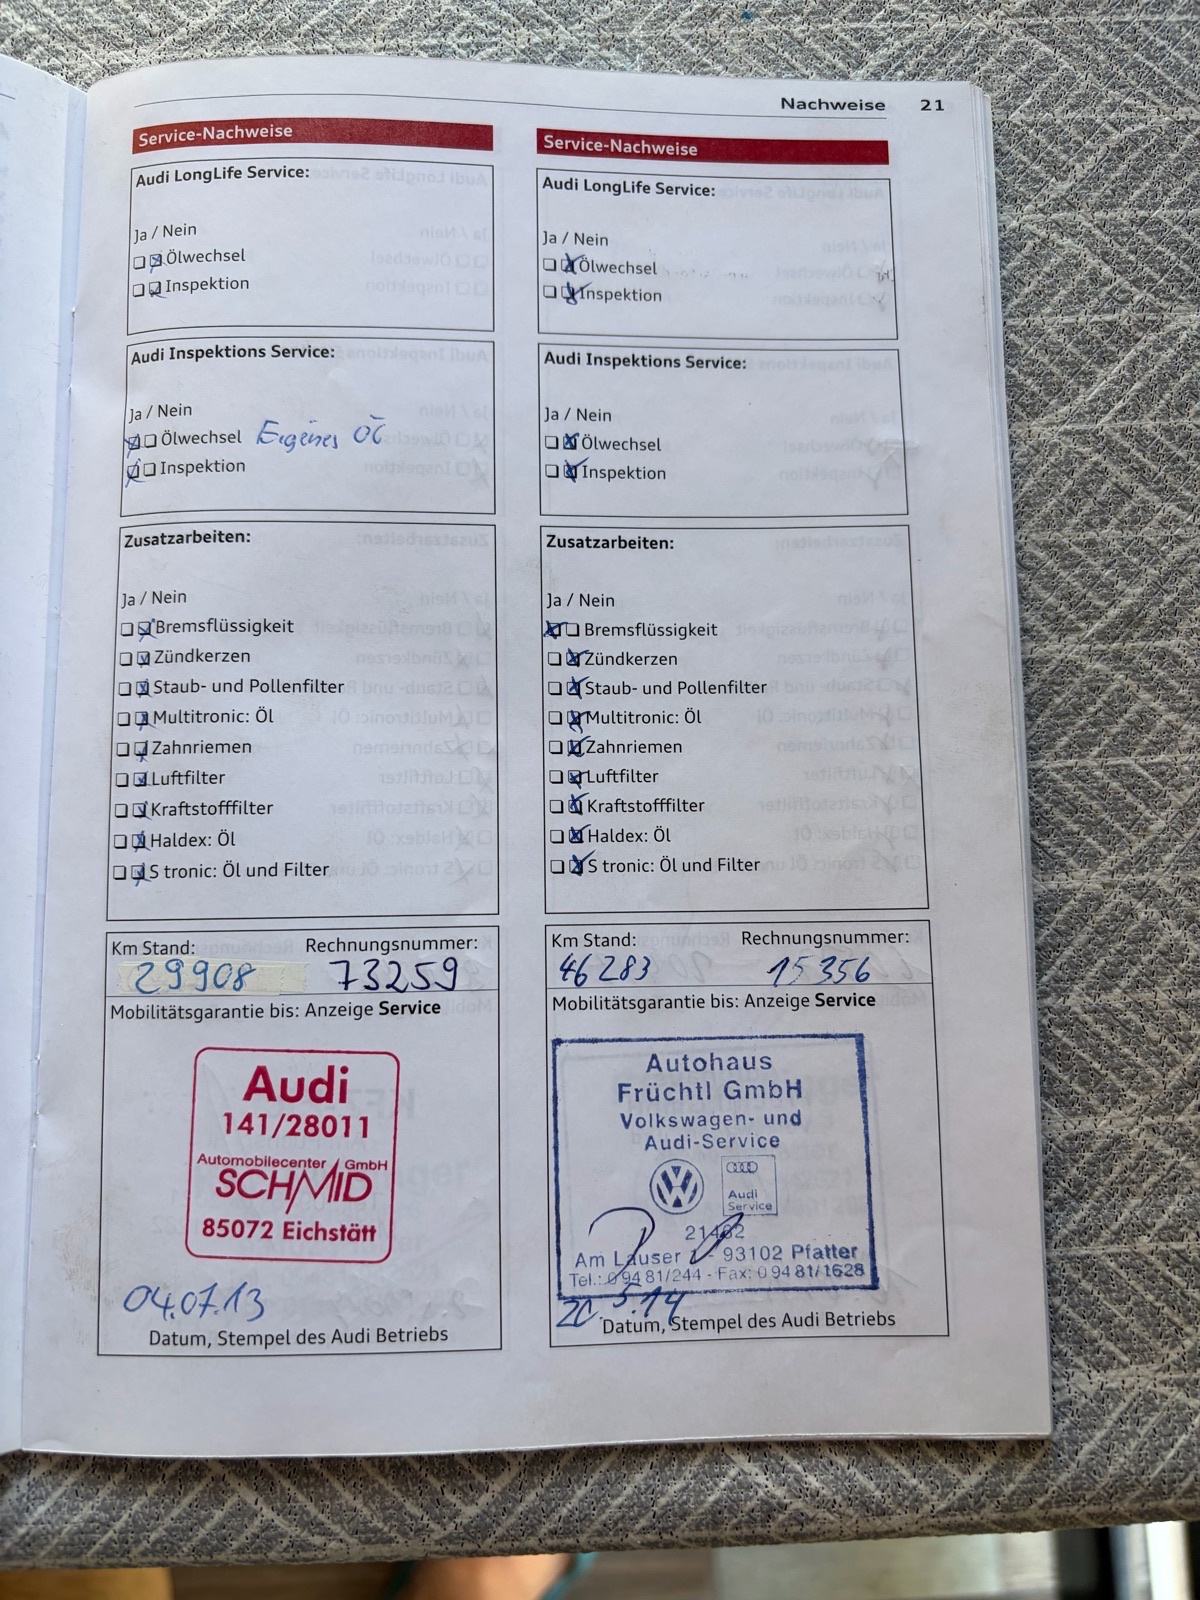 Nachweise 21
Service-Nachweise
Audi LongLife Service:
Ja / Nein
Ölwechsel
Inspektion
Audi Inspektions Service:
Ja / Nein
Ölwechsel Eigenes Öl
Inspektion
Zusatzarbeiten:
Ja / Nein
Bremsflüssigkeit
Zündkerzen
Staub- und Pollenfilter
Multitronic: Öl
Zahnriemen
Luftfilter
Kraftstofffilter
Haldex: Öl
S tronic: Öl und Filter
Km Stand: Rechnungsnummer:
29908 73259
Mobilitätsgarantie bis: Anzeige Service
Audi
141/28011
Automobilecenter GmbH
SCHMID
85072 Eichstätt
04.07.13
Datum, Stempel des Audi Betriebs
Service-Nachweise
Audi LongLife Service:
Ja / Nein
Ölwechsel
Inspektion
Audi Inspektions Service:
Ja / Nein
Ölwechsel
Inspektion
Zusatzarbeiten:
Ja / Nein
Bremsflüssigkeit
Zündkerzen
Staub- und Pollenfilter
Multitronic: Öl
Zahnriemen
Luftfilter
Kraftstofffilter
Haldex: Öl
S tronic: Öl und Filter
Km Stand: Rechnungsnummer:
46283 15356
Mobilitätsgarantie bis: Anzeige Service
Autohaus
Früchtl GmbH
Volkswagen- und
Audi-Service
Audi
Service
Am Lauser - 93102 Pfatter
Tel.: 09481/244 - Fax: 09481/1628
5.14
Datum, Stempel des Audi Betriebs